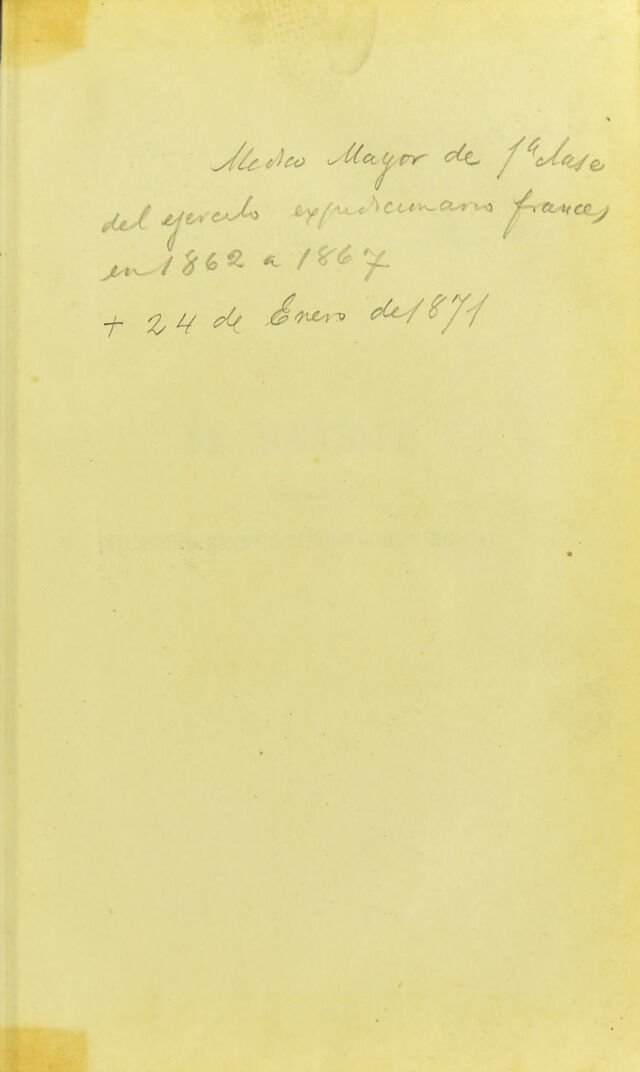 Medico Mayor de 1ª clase
del ejercito expedicionario frances
en 1862 a 1867
+ 24 de Enero de 1871